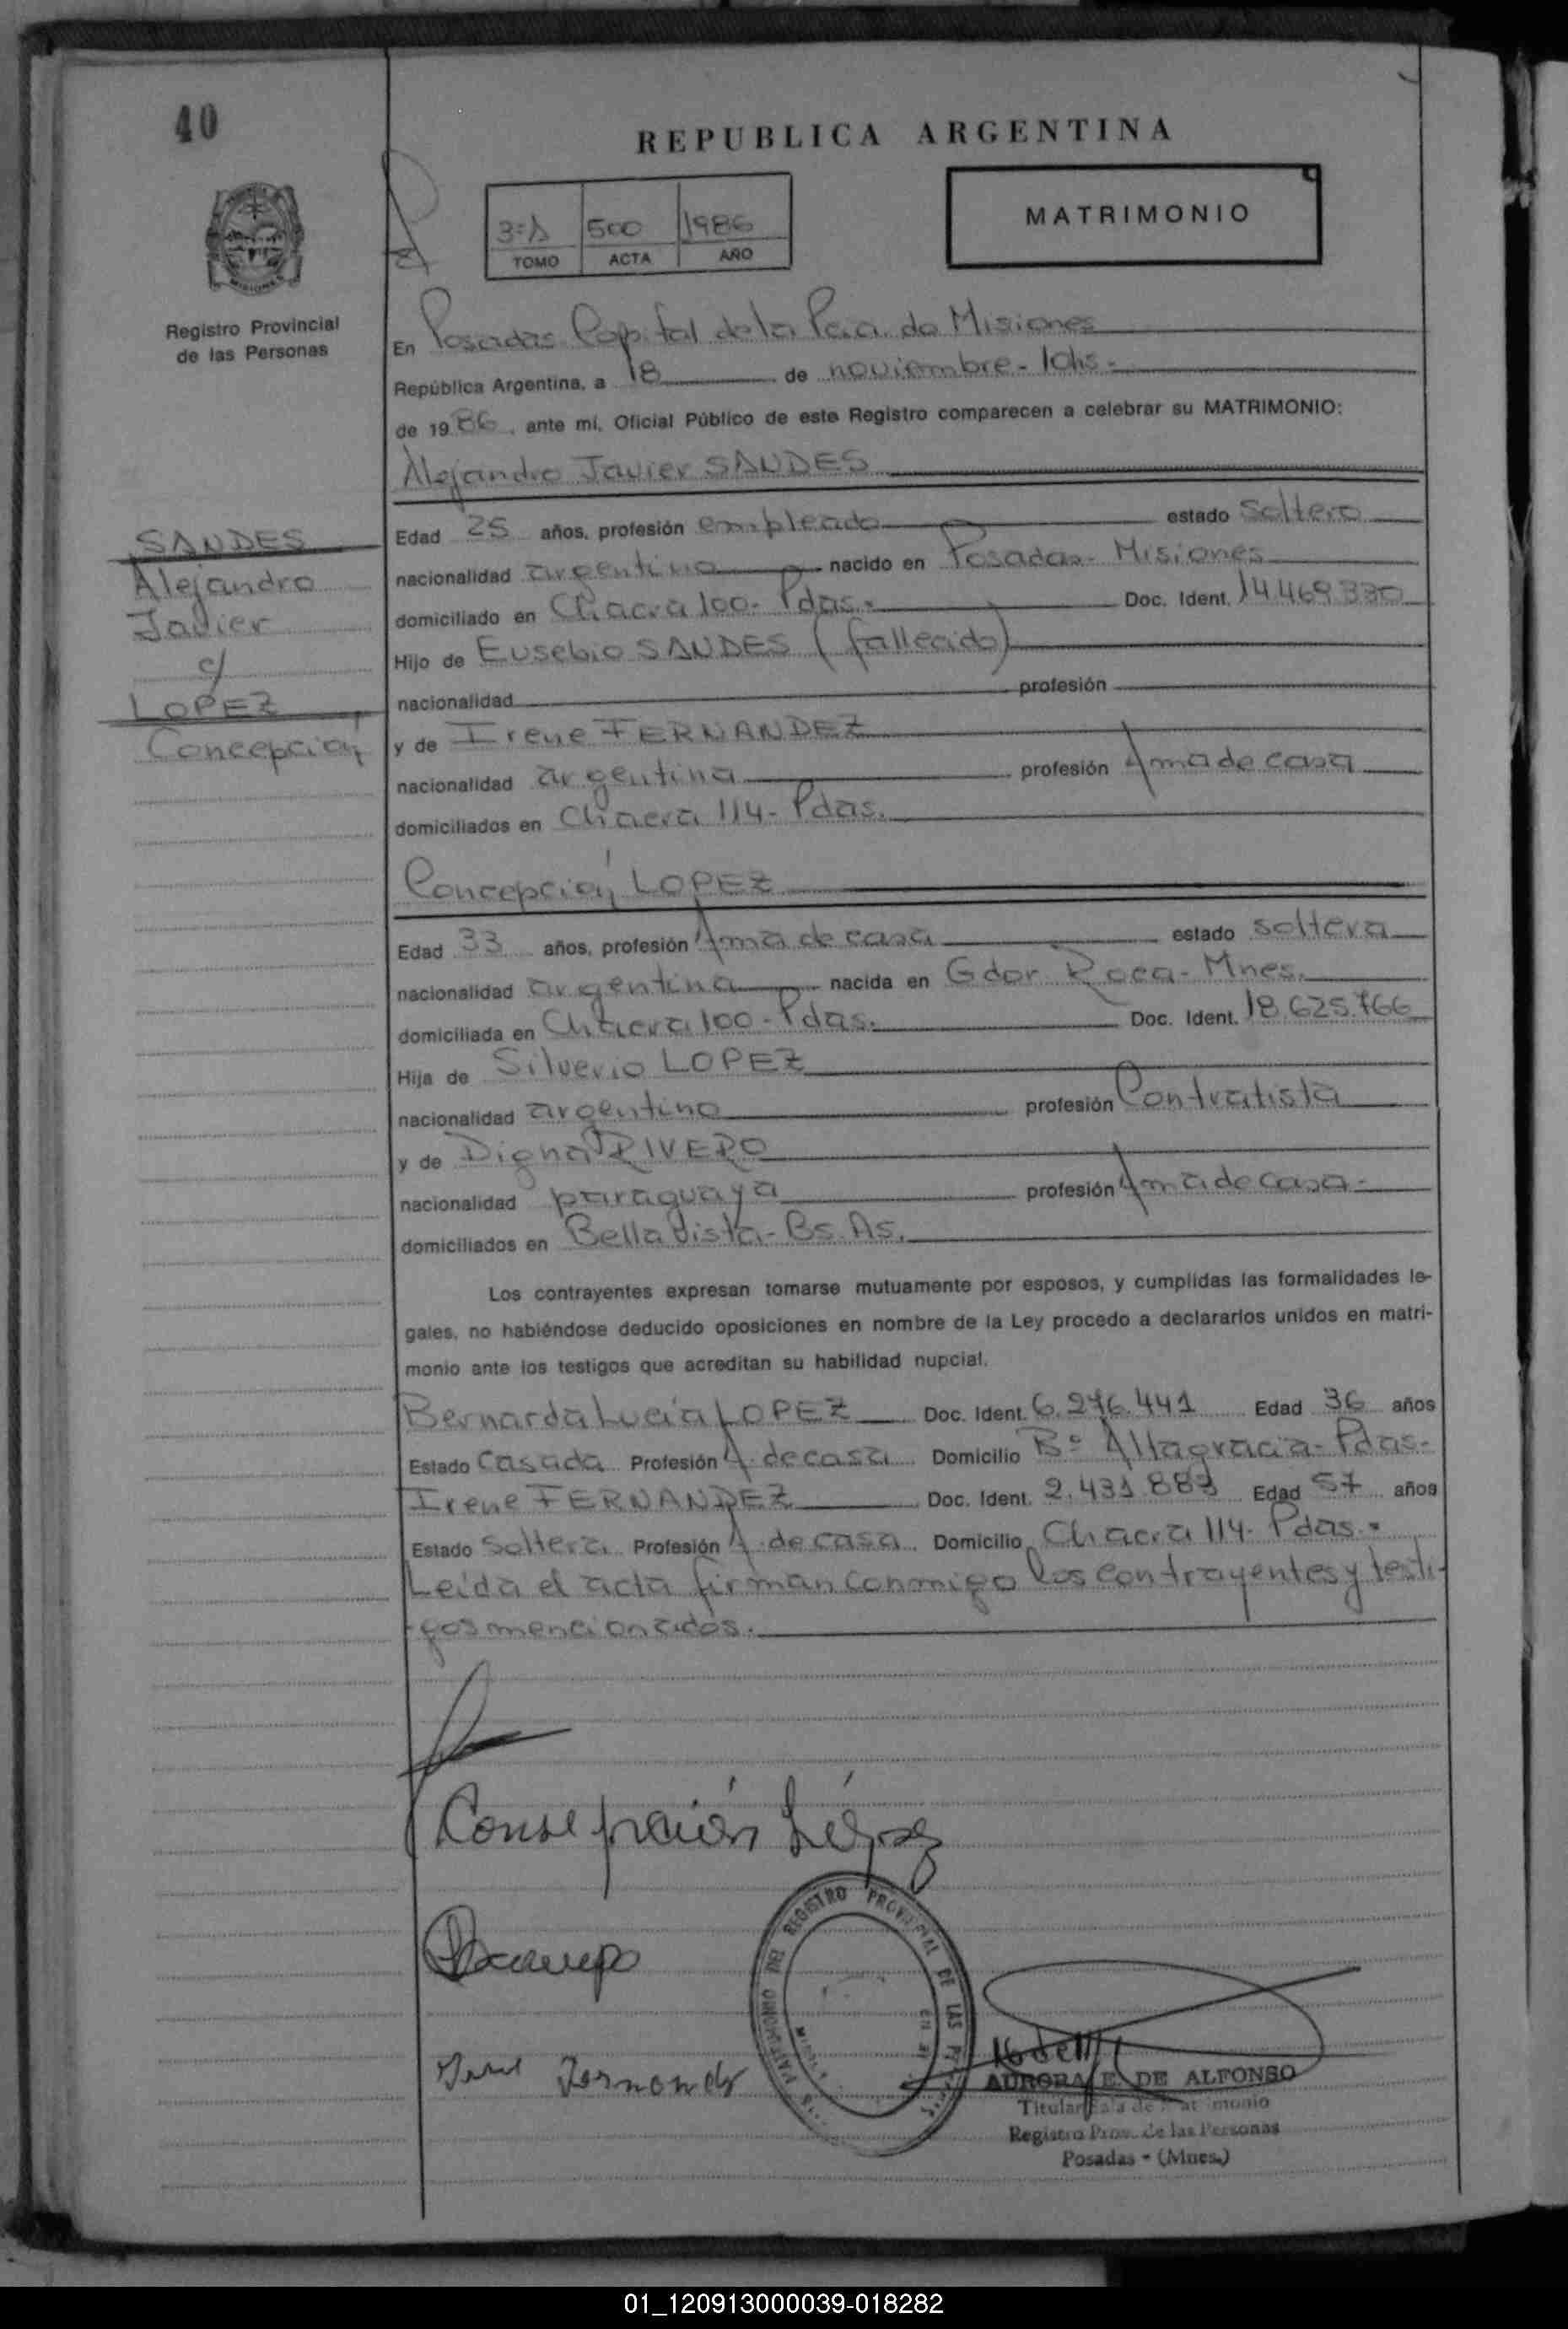 40
REPUBLICA ARGENTINA
MATRIMONIO
3=A 500 1986
TOMO ACTA AÑO
Registro Provincial
de las Personas
En Posadas Capital de la Pcia. de Misiones
República Argentina, a 18 de noviembre - 10hs -
de 19 86, ante mí, Oficial Público de este Registro comparecen a celebrar su MATRIMONIO:
Alejandro Javier SANDES
SANDES
Alejandro
Javier
c/
LOPEZ
Concepción
Edad 25 años, profesión empleado estado soltero
nacionalidad argentino nacido en Posadas - Misiones
domiciliado en Chacra 100 - Pdas. Doc. Ident. 14.469.330
Hijo de Eusebio SANDES (fallecido)
nacionalidad profesión
y de Irene FERNANDEZ
nacionalidad argentina profesión Ama de casa
domiciliados en Chacra 114 - Pdas.
Concepción LOPEZ
Edad 33 años, profesión Ama de casa estado soltera
nacionalidad argentina nacida en Gdor. Roca - Mnes.
domiciliada en Chacra 100 - Pdas. Doc. Ident. 18.625.766
Hija de Silverio LOPEZ
nacionalidad argentino profesión Contratista
y de Digna RIVERO
nacionalidad paraguaya profesión Ama de casa -
domiciliados en Bella Vista - Bs. As.
Los contrayentes expresan tomarse mutuamente por esposos, y cumplidas las formalidades le-
gales, no habiéndose deducido oposiciones en nombre de la Ley procedo a declararlos unidos en matri-
monio ante los testigos que acreditan su habilidad nupcial.
Bernarda Lucía LOPEZ Doc. Ident. 6.276.441 Edad 36 años
Estado Casada Profesión A. de casa Domicilio Bº Altagracia - Pdas -
Irene FERNANDEZ Doc. Ident. 2.431.883 Edad 57 años
Estado Soltera Profesión A. de casa Domicilio Chacra 114 - Pdas.
Leída el acta firman conmigo los contrayentes y testi-
-gos mencionados.
Consepción López
DEL REGISTRO PROVINCIAL DE LAS
Irene Fernandez
AURORA E. DE ALFONSO
Titular Sala de Matrimonio
Registro Prov. de las Personas
Posadas - (Mnes.)
01_120913000039-018282